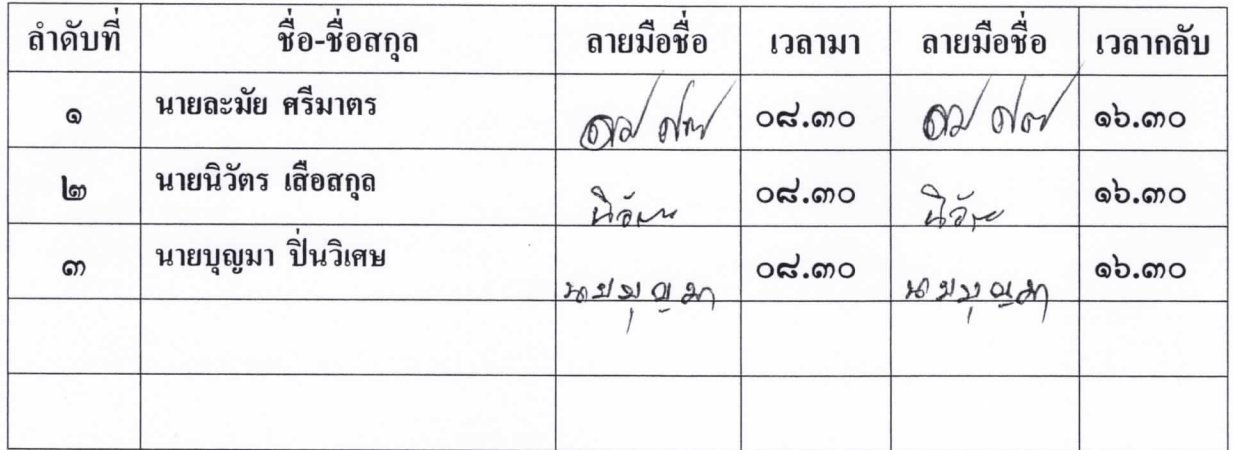 ลำดับที่ ชื่อ-ชื่อสกุล ลายมือชื่อ เวลามา ลายมือชื่อ เวลากลับ
๑ นายละมัย ศรีมาตร ๐๘.๓๐ ๑๖.๓๐
๒ นายนิวัตร เสือสกุล ๐๘.๓๐ ๑๖.๓๐
๓ นายบุญมา ปิ่นวิเศษ นายบุญมา ๐๘.๓๐ นายบุญมา ๑๖.๓๐